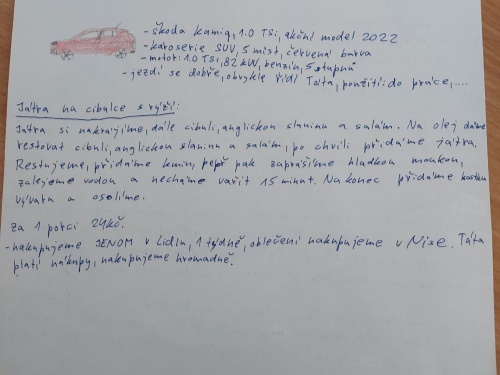 - Škoda Kamiq, 1.0 TSi, akční model 2022
- karoserie SUV, 5 míst, červená barva
- motor: 1.0 TSi, 82 kW, benzín, 5 stupňů
- jezdí se dobře, obvykle řídí Táta, použití: do práce,....
Játra na cibulce s rýží:
Játra si nakrájíme, dále cibuli, anglickou slaninu a salám. Na olej dáme
restovat cibuli, anglickou slaninu a salám, po chvíli přidáme játra.
Restujeme, přidáme kmín, pepř pak zaprášíme hladkou moukou,
zalejeme vodou a necháme vařit 15 minut. Nakonec přidáme kostku
vývaru a osolíme.
za 1 porci 24kč.
- nakupujeme JENOM v Lidlu, 1 týdně, oblečení nakupujeme v Nise. Táta
platí nákupy, nakupujeme hromadně.